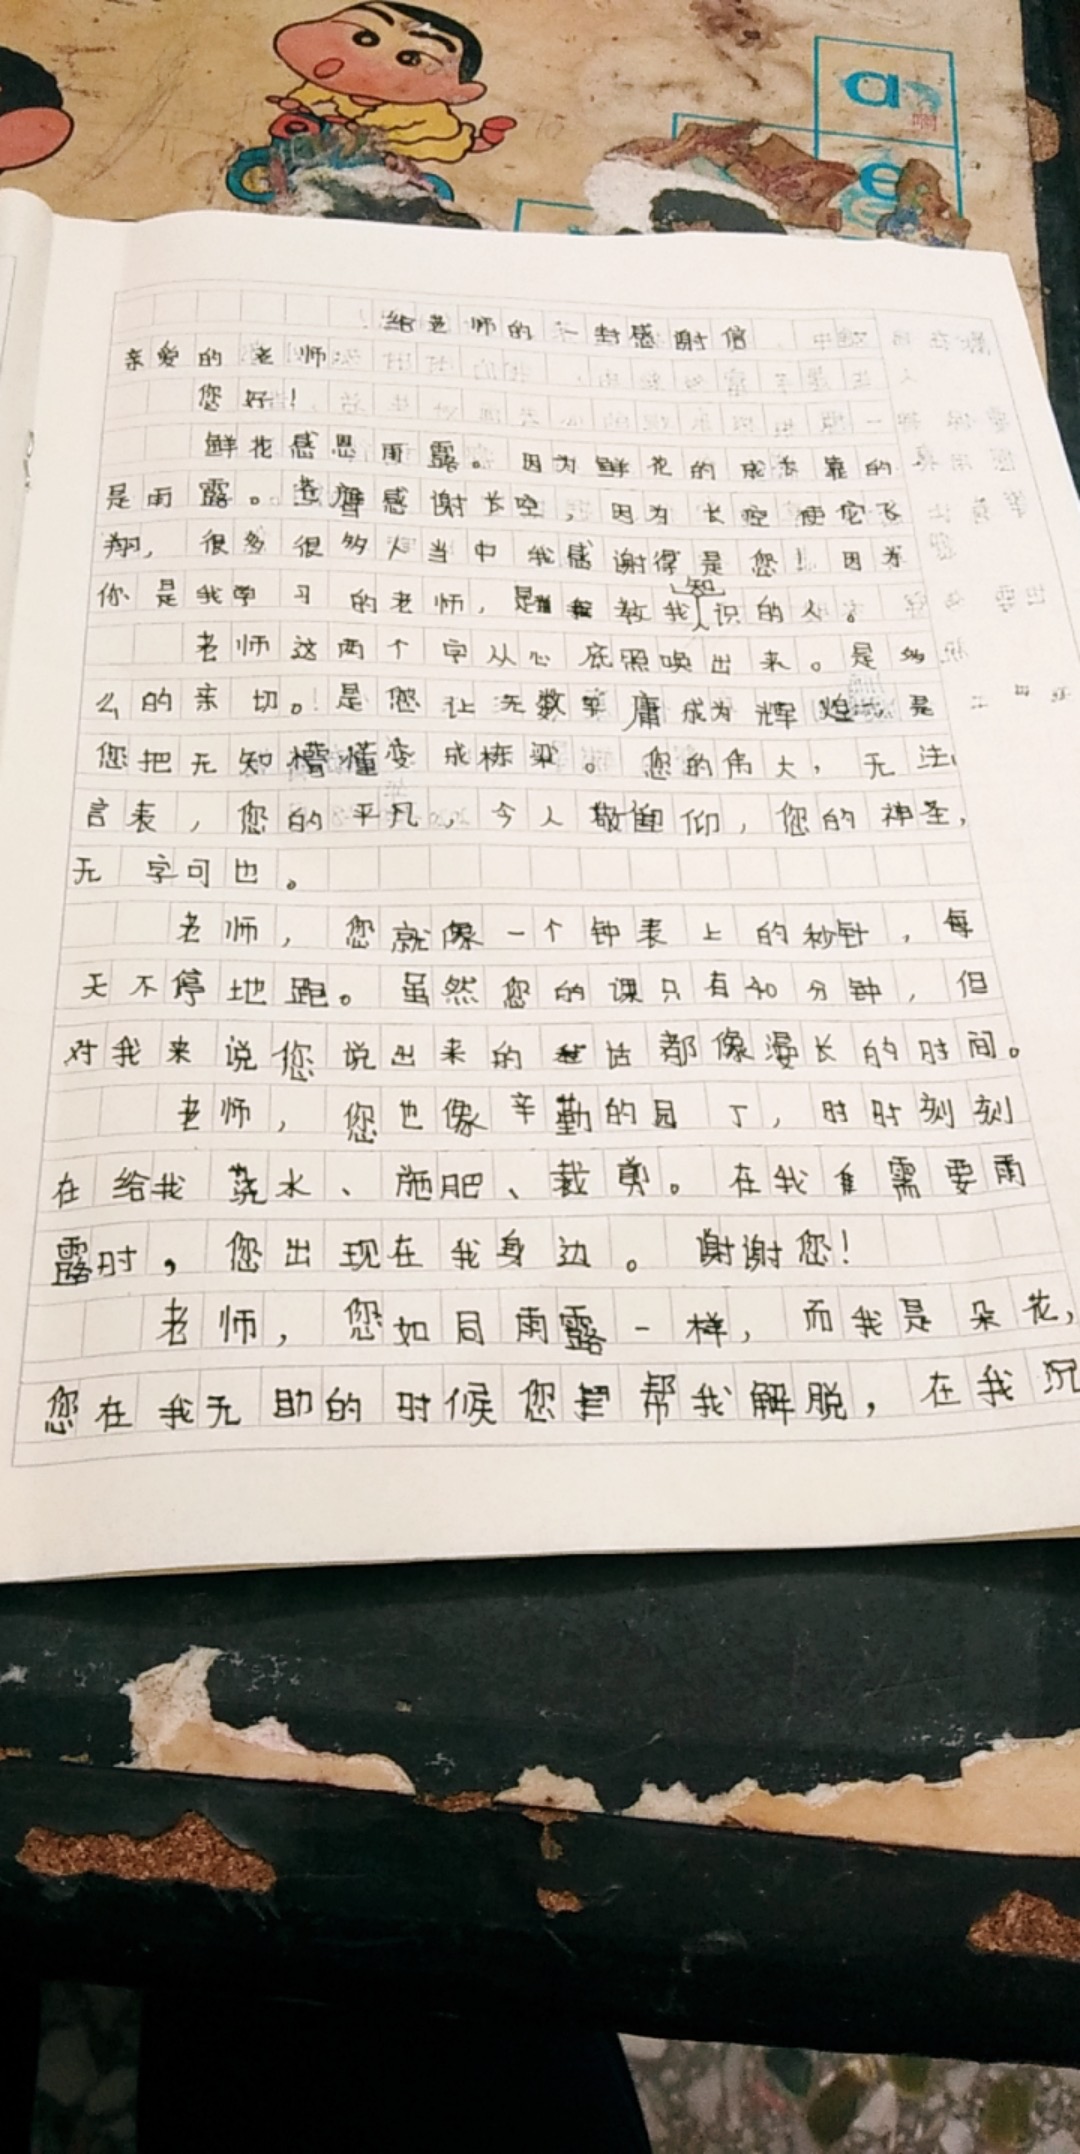 a
啊
e
给老师的一封感谢信
亲爱的老师
您好!
鲜花感恩雨露。因为鲜花的成长靠的
是雨露。苍鹰感谢长空,因为长空使它飞
翔,很多很多人当中我感谢得是您!因为
你是我学习的老师,是教我知识的人。
老师这两个字从心底照唤出来。是多
么的亲切。是您让无数平庸成为辉煌 是
您把无知懵懂变成栋梁。您的伟大,无法
言表,您的平凡,令人敬仰,您的神圣,
无字可也。
老师,您就像一个钟表上的秒针,每
天不停地跑。虽然您的课只有40分钟,但
对我来说您说出来的话都像漫长的时间。
老师,您也像辛勤的园丁,时时刻刻
在给我浇水、施肥、裁剪。在我需要雨
露时,您出现在我身边。谢谢您!
老师,您如同雨露一样,而我是朵花,
您在我无助的时候您帮我解脱,在我沉